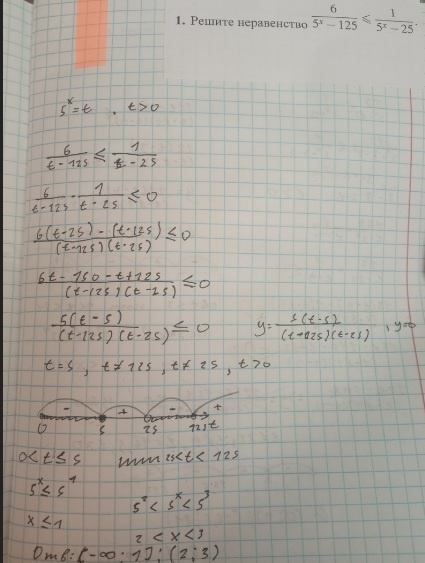 1. Решите неравенство 6/(5ˣ − 125) ⩽ 1/(5ˣ − 25).
5ˣ = t , t > 0
6/(t − 125) ⩽ 1/(t − 25)
6/(t − 125) − 1/(t − 25) ⩽ 0
(6(t − 25) − (t − 125))/((t − 125)(t − 25)) ⩽ 0
(6t − 150 − t + 125)/((t − 125)(t − 25)) ⩽ 0
5(t − 5)/((t − 125)(t − 25)) ⩽ 0 y = 5(t − 5)/((t − 125)(t − 25)) , y = 0
t = 5 , t ≠ 125 , t ≠ 25 , t > 0
− + − +
0 5 25 125 t
0 < t ⩽ 5 или 25 < t < 125
5ˣ ⩽ 5¹ 5² < 5ˣ < 5³
x ⩽ 1 2 < x < 3
Отв: (−∞; 1]; (2; 3)